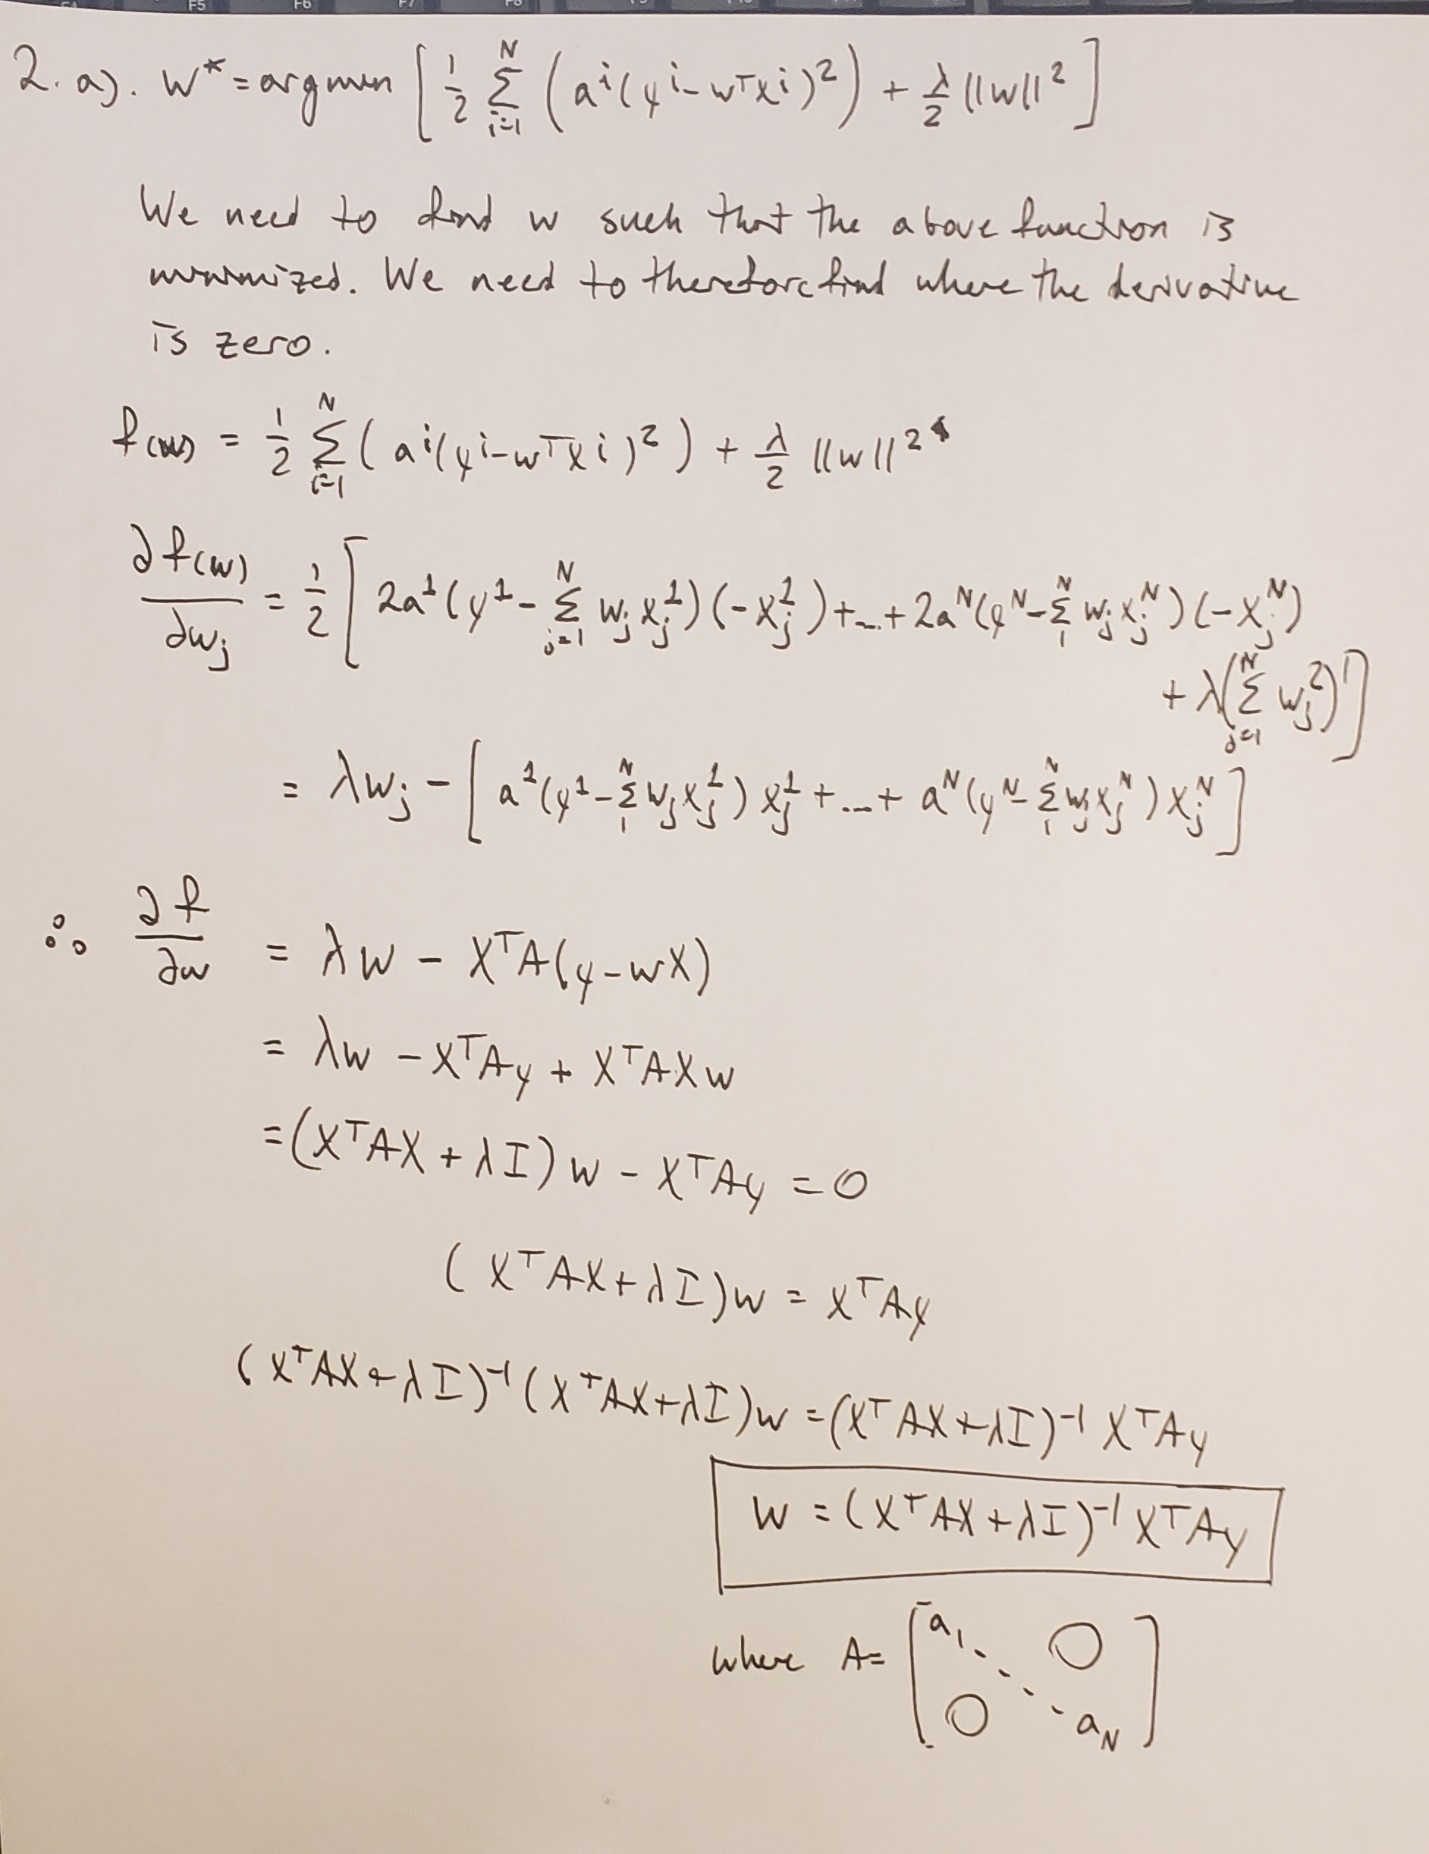 F5 F6 F7 F8
2. a). w* = argmin [ 1/2 Σ_{i=1}^{N} ( a^i (y^i - w^T x^i)^2 ) + λ/2 ||w||^2 ]
We need to find w such that the above function is
minimized. We need to therefore find where the derivative
is zero.
f(w) = 1/2 Σ_{i=1}^{N} ( a^i (y^i - w^T x^i)^2 ) + λ/2 ||w||^2
∂f(w)/∂w_j = 1/2 [ 2a^1 (y^1 - Σ_{j=1}^{N} w_j x_j^1)(-x_j^1) + ... + 2a^N (y^N - Σ_1^N w_j x_j^N)(-x_j^N)
+ λ(Σ_{j=1}^{N} w_j^2)' ]
= λw_j - [ a^1 (y^1 - Σ_1^N w_j x_j^1) x_j^1 + ... + a^N (y^N - Σ_1^N w_j x_j^N) x_j^N ]
∴ ∂f/∂w = λw - X^T A(y - wX)
= λw - X^T Ay + X^T AXw
= (X^T AX + λI)w - X^T Ay = 0
(X^T AX + λI)w = X^T Ay
(X^T AX + λI)^-1 (X^T AX + λI)w = (X^T AX + λI)^-1 X^T Ay
w = (X^T AX + λI)^-1 X^T Ay
where A = [ a_1 ⋱ 0
0 a_N ]